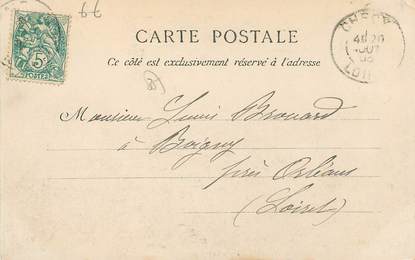 99
CARTE POSTALE
Ce côté est exclusivement réservé à l'adresse
CHECY
LOI
5c
POSTES
Monsieur Louis Brouard
à Boigny
près Orléans
(Loiret)